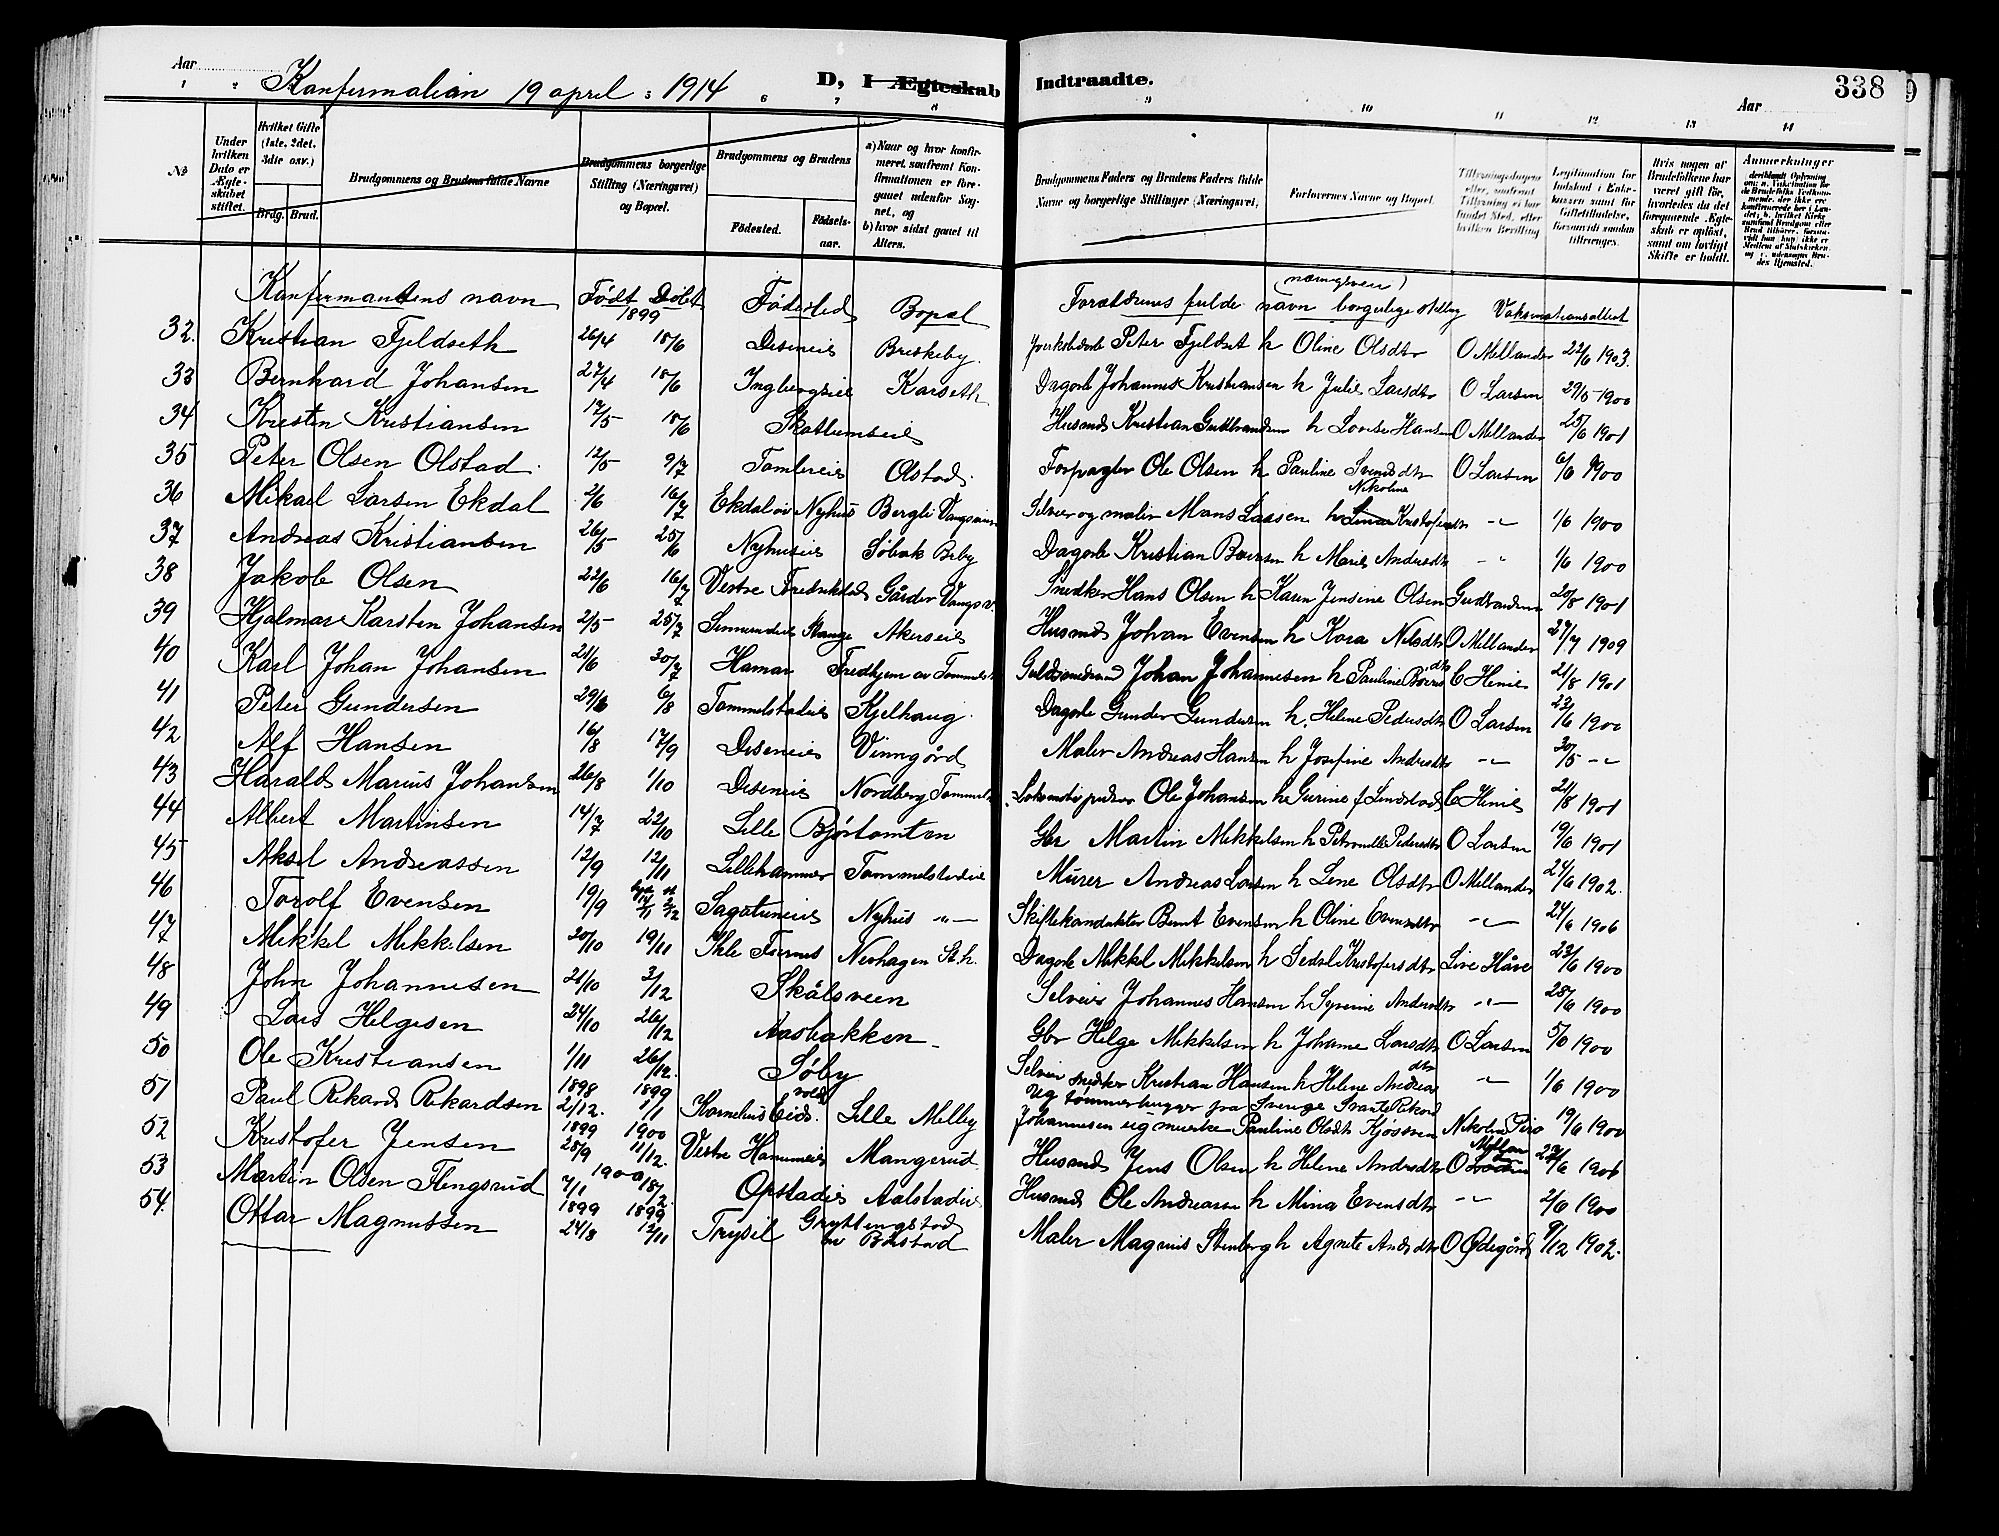 Aar
Konfirmation 19 april 1914
D, I Ægteskab Indtraadte.
338
Aar
1 2 3 6 7 8 9 10 11 12 13 14
No
Under hvilken Dato er Ægteskabet stiftet.
Hvilket Gifte (1ste, 2det, 3die osv.)
Brdg. Brud.
Brudgommens og Brudens fulde Navne
Brudgommens borgerlige Stilling (Næringsvei) og Bopæl.
Brudgommens og Brudens
Fødested. Fødsels-aar.
a) Naar og hvor konfirmeret, saafremt Konfirmationen er foregaaet udenfor Sognet, og
b) hvor sidst gaaet til Alters.
Brudgommens Faders og Brudens Faders fulde Navne og borgerlige Stillinger (Næringsvei).
Forlovernes Navne og Bopæl.
Legitimation for Indskud i Enkekassen samt for Giftetilladelse, forsaavidt saadan tiltrænges.
Hvis nogen af Brudefolkene har været gift før, hvorledes da det foregaaende Ægteskab er opløst, samt om lovligt Skifte er holdt.
Anmerkninger
Konfirmandens navn Født Døbt Fødested Bopæl Forældrenes fulde navn borgerlige stilling Vaksinationsattest
1899
32. Kristian Fjeldseth 26/4 18/6 Diseneie Briskeby. Peter Fjeldset h Oline Olsdtr O Mellander 22/6 1903.
33 Bernhard Johansen 27/4 18/6 Ingbergseie Karseth Dagarb Johannes Kristiansen h Julie Larsdtr O Larsen 29/5 1900
34 Kristen Kristiansen 17/5 18/6 Skattumseie Husmd Kristian Gulbrandsen h Lovise Hansen O Mellander 25/6 1901
35 Peter Olsen Olstad 12/5 9/7 Tomtereie Olstad. Forpagter Ole Olsen h Pauline Svendsdtr O Larsen 6/6 1900
36 Mikael Larsen Ekdal 2/6 16/7 Ekdal av Nyhus Bergli Vangsveien Selveier og maler Hans Larsen h Nikoline Kristofersdtr -"- 1/6 1900
37 Andreas Kristiansen 26/5 25/6 Nyhuseie Søbak Beby Dagarb Kristian Berntsen h Marie Andersdtr -"- 1/6 1900
38 Jakob Olsen 22/6 16/7 Vestre Fredrikstad Gårder Vangsv. Snedker Hans Olsen h Karen Jensine Olsen Gudbrandsen 20/8 1901
39 Hjalmar Karsten Johansen 2/5 25/7 Stange Akerseie Husmd Johan Evensen h Kora Nilsdtr O Mellander 27/7 1909
40 Karl Johan Johansen 21/6 30/7 Hamar Fredhjem av Tommelst Guldsmedsvend Johan Johannesen h Pauline Berntsdtr C Henie 21/8 1901
41 Peter Gundersen 29/6 6/8 Tommelstadeie Kjelhaug. Dagarb Gunder Gundersen h. Helene Pedersdtr O Larsen 23/6 1900
42 Alf Hansen 16/8 17/9 Diseneie Vinngård Maler Andreas Hansen h Josefine Andersdtr -"- 30/5 -"-
43 Harald Marius Johansen 26/8 1/10 Diseneie Nordberg Tommelst Lokomotivpudser Ole Johansen h Gurine f Lindstad C Henie 21/8 1901
44 Albert Martinsen 14/7 22/10 Lille Bjørtomten Gbr Martin Mikkelsen h Petronelle Pedersdtr O Larsen 19/6 1901
45 Aksel Andreassen 12/9 12/11 Lillehammer Tommelstadeie Murer Andreas Larsen h Lene Olsdtr O Mellander 24/6 1902.
46 Torolf Evensen 19/9 Sagatuneie Nyhus -"- Skiftekonduktør Bernt Evensen h Oline Evensdtr -"- 24/6 1906
47 Mikkel Mikkelsen 20/10 19/11 Ihle Furnes Nerhagen St.h. Dagarb Mikkel Mikkelsen h Sedsel Kristofersdtr Live Håve 23/6 1900
48 John Johannesen 21/10 3/12 Skålsveen Selveier Johannes Hansen h Syverine Andersdtr -"- 28/6 1900
49 Lars Helgesen 24/10 26/12 Aasbakken Gbr Helge Mikkelsen h Johanne Larsdtr O Larsen 5/6 1900
50 Ole Kristiansen 1/11 26/12. Søby Selveier snedker Kristian Hansen h Helene Andreasdtr -"- 1/6 1900
51 Paul Rikard Rikardsen 1898 2/12. 1899 1/1 Kornelius Eidsvold. Lille Melby Ug tømmerhugger fra Sverige Svante Rikard Johannesen ug pike Pauline Olsdtr Nikoline 19/6 1900
52 Kristofer Jensen 1899 28/9 1900 11/12. Vestre Hanumeie Mangerud Husmd Jens Olsen h Helene Andersdtr O 1906
53 Martin Olsen Flengsrud 1900 7/1 18/2. Opstadeie Aalstadeie Husmd Ole Andreasen h Mina Evensdtr -"- 2/6 1900
54. Ottar Magnussen 1899 24/8 1899 12/11 Trysil Gryttingstad av Bolstad Maler Magnus Stenberg h Agnete Andsdtr O Ødegård 9/12 1902.